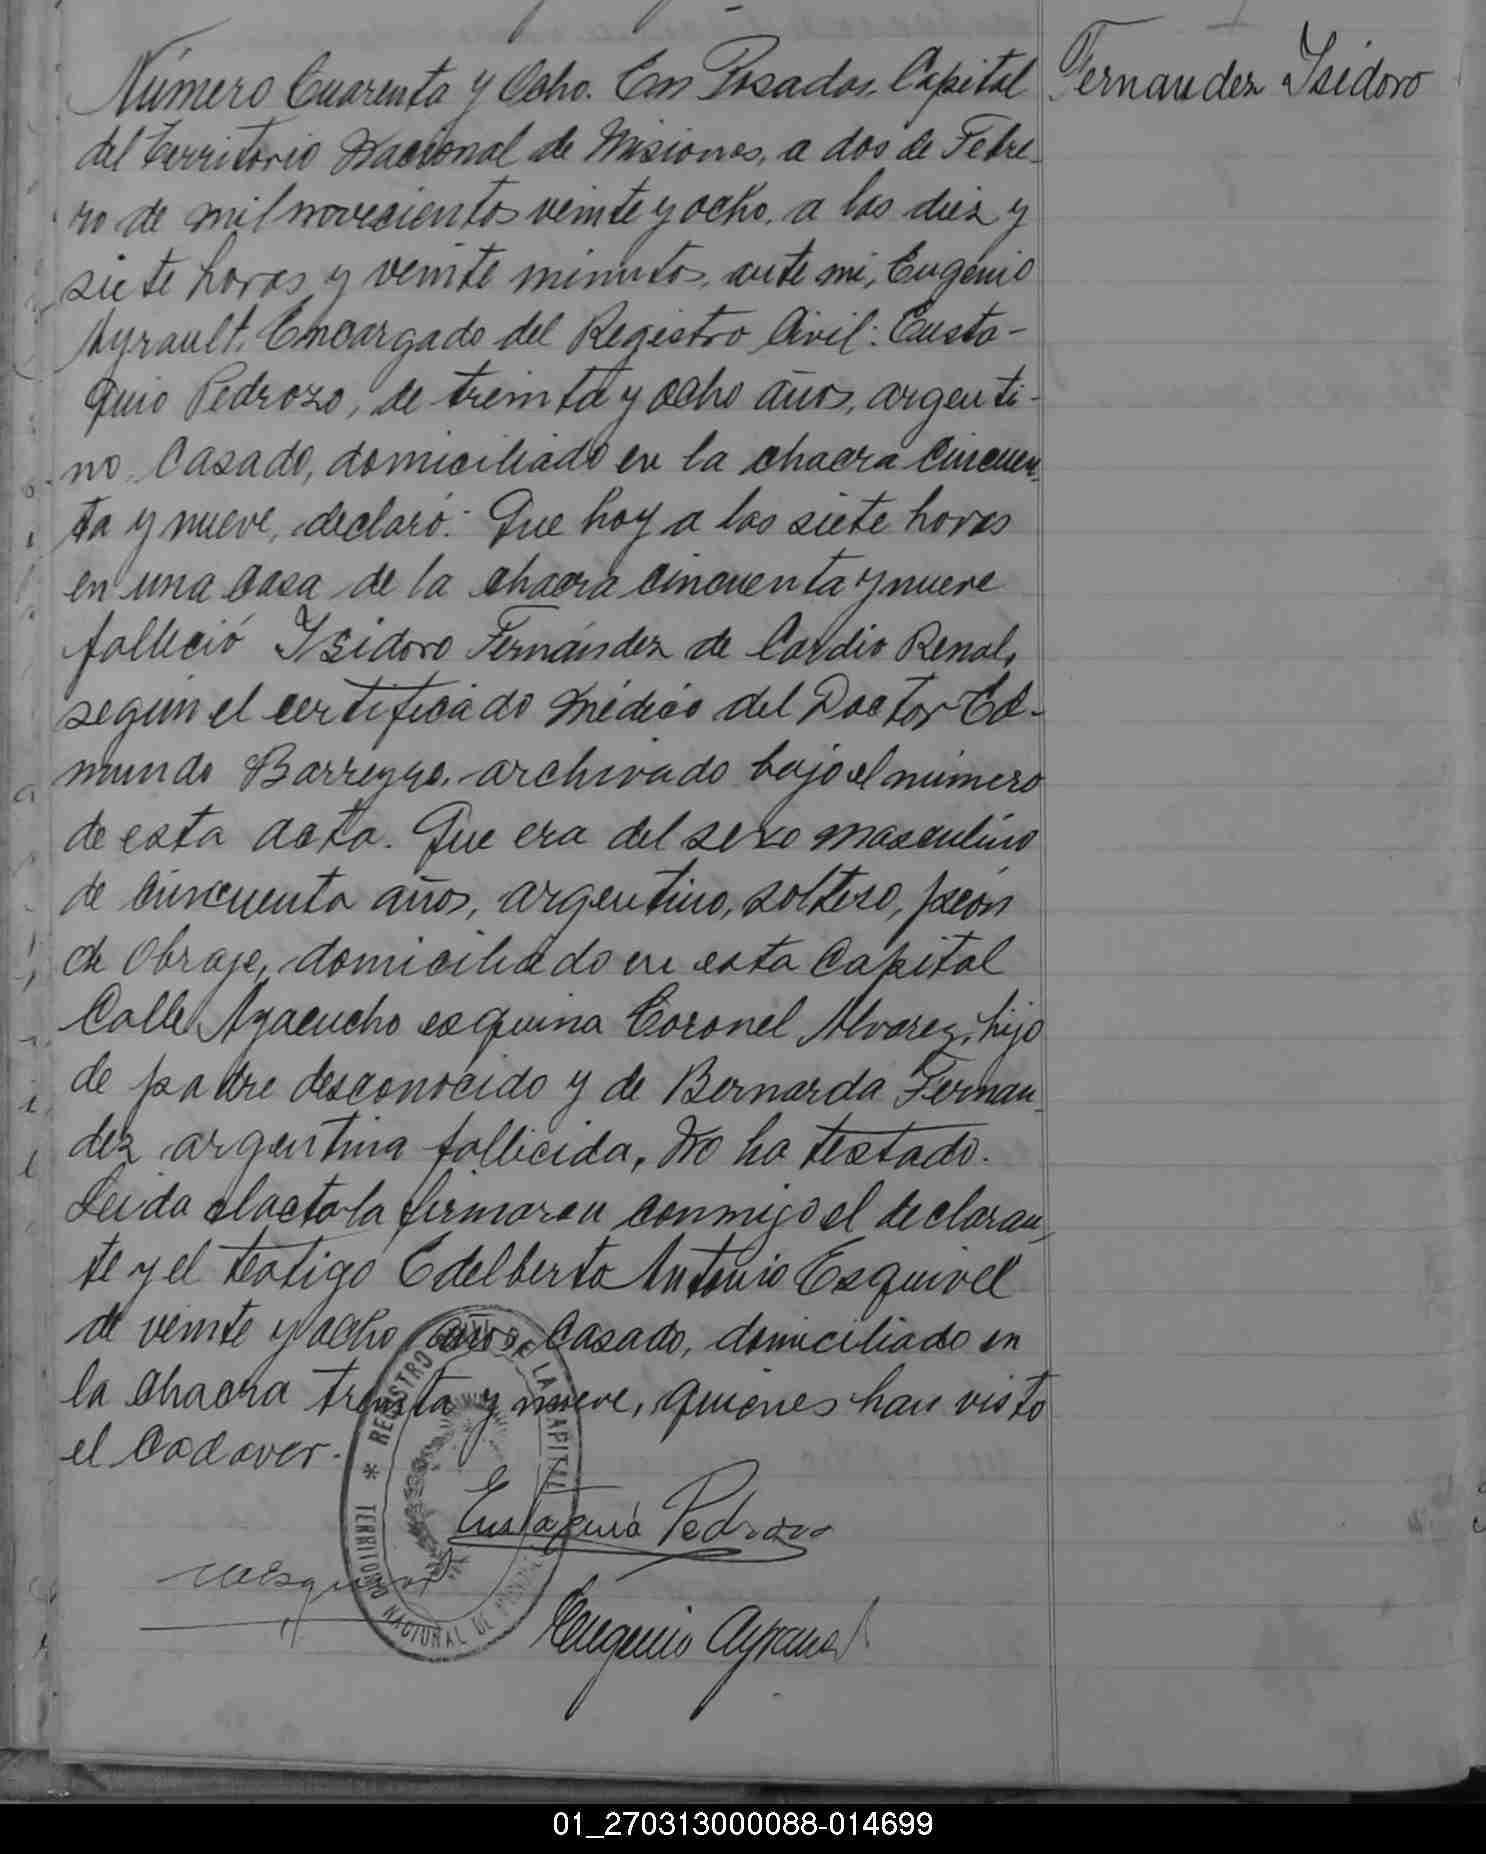 Número Cuarenta y Ocho. En Posadas, Capital
Fernandez Isidoro
del Territorio Nacional de Misiones, a dos de Febre-
ro de mil novecientos veinte y ocho, a las diez y
siete horas y veinte minutos, ante mi, Eugenio
Ayrault, Encargado del Registro Civil: Eusta-
quio Pedrozo, de treinta y ocho años, argenti-
no, Casado, domiciliado en la chacra Cincuen-
ta y nueve, declaró: Que hoy a las siete horas
en una casa de la chacra cincuenta y nueve
falleció Isidoro Fernández de Cardio Renal,
según el certificado médico del Doctor Ed-
mundo Barreyro, archivado bajo el número
de esta acta. Que era del sexo masculino
de cincuenta años, argentino, soltero, peón
de Obraje, domiciliado en esta Capital
Calle Ayacucho esquina Coronel Alvarez, hijo
de padre desconocido y de Bernarda Fernan-
dez argentina fallicida, No ha testado.
Leida el acta la firmaron conmigo el declaran-
te y el testigo Edelberto Antonio Esquivel
de veinte y ocho años, Casado, domiciliado en
la chacra treinta y nueve, quienes han visto
el Cadaver.
REGISTRO CIVIL DE LA CAPITAL
TERRITORIO NACIONAL DE MISIONES
Eustaquio Pedrozo
Eugenio Ayrault
01_270313000088-014699